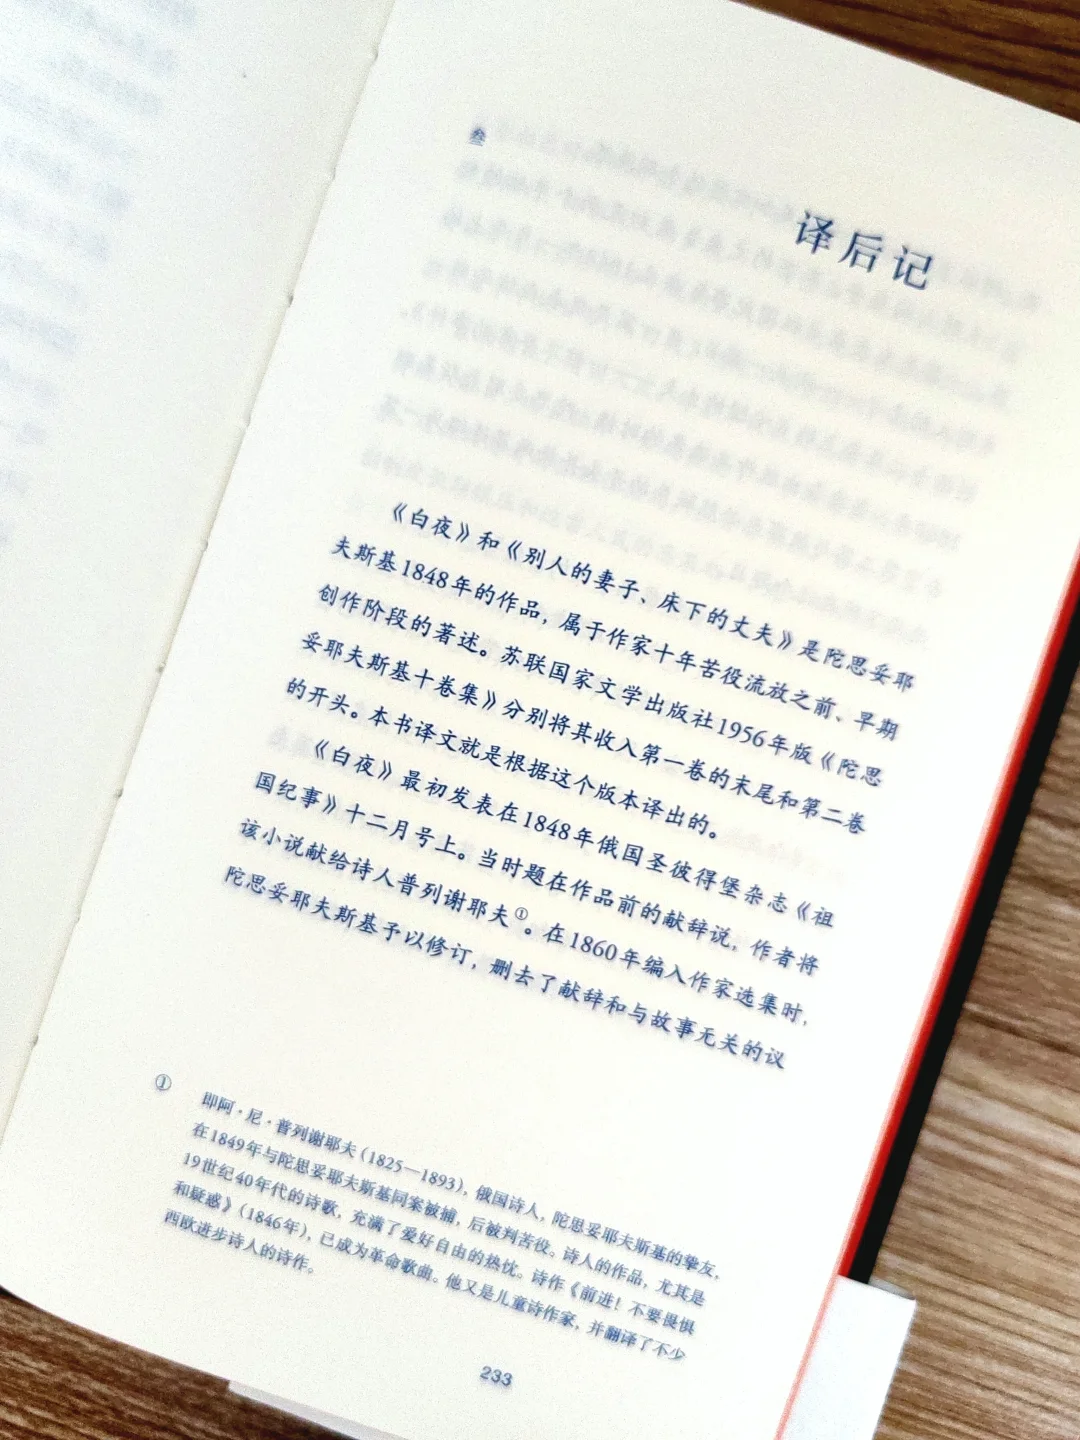 叁
译后记
《白夜》和《别人的妻子、床下的丈夫》是陀思妥耶
夫斯基1848年的作品，属于作家十年苦役流放之前、早期
创作阶段的著述。苏联国家文学出版社1956年版《陀思
妥耶夫斯基十卷集》分别将其收入第一卷的末尾和第二卷
的开头。本书译文就是根据这个版本译出的。
《白夜》最初发表在1848年俄国圣彼得堡杂志《祖
国纪事》十二月号上。当时题在作品前的献辞说，作者将
该小说献给诗人普列谢耶夫①。在1860年编入作家选集时，
陀思妥耶夫斯基予以修订，删去了献辞和与故事无关的议
① 即阿·尼·普列谢耶夫（1825—1893），俄国诗人，陀思妥耶夫斯基的挚友，
在1849年与陀思妥耶夫斯基同案被捕，后被判苦役。诗人的作品，尤其是
19世纪40年代的诗歌，充满了爱好自由的热忱。诗作《前进！不要畏惧
和疑惑》（1846年），已成为革命歌曲。他又是儿童诗作家，并翻译了不少
西欧进步诗人的诗作。
233